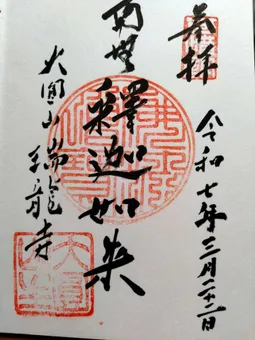 奉拝
令和七年三月二十二日
南無釋迦如来
大圓山瑞龍寺